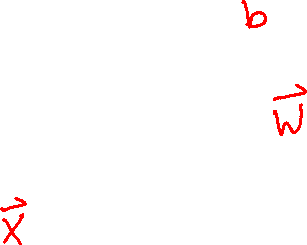 b
w⃗
x⃗